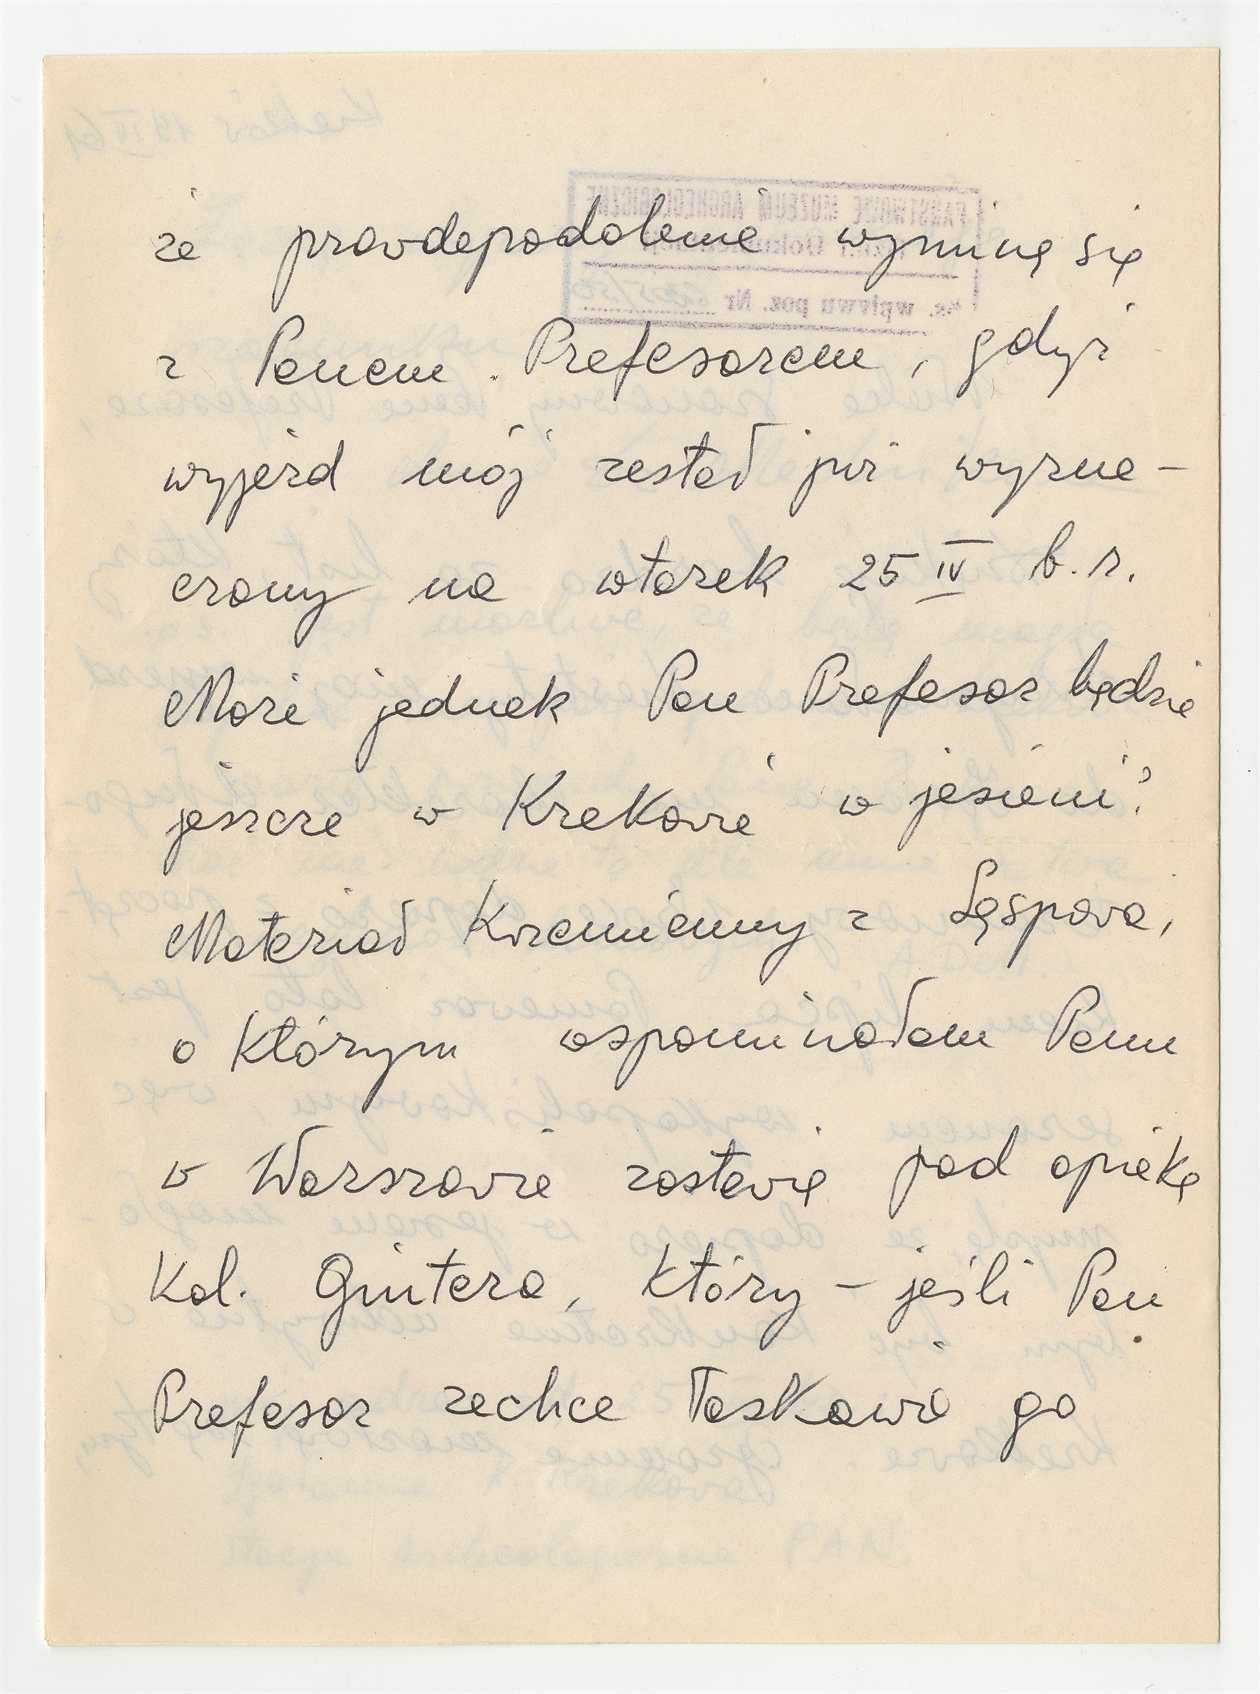 że prawdopodobnie wyminę się
z Panem Profesorem, gdyż
wyjazd mój został już wyzna-
czony na wtorek 25 IV b.r.
Może jednak Pan Profesor będzie
jeszcze w Krakowie w jesieni?
Materiał krzemienny z Sąspowa,
o którym wspominałam Panu
w Warszawie zostawię pod opieką
Kol. Gintera, który – jeśli Pan
Profesor zechce łaskawie go